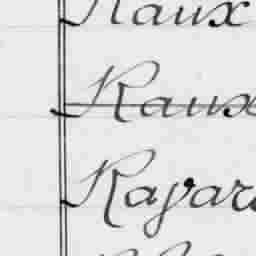 Raux
Raux
Rayar